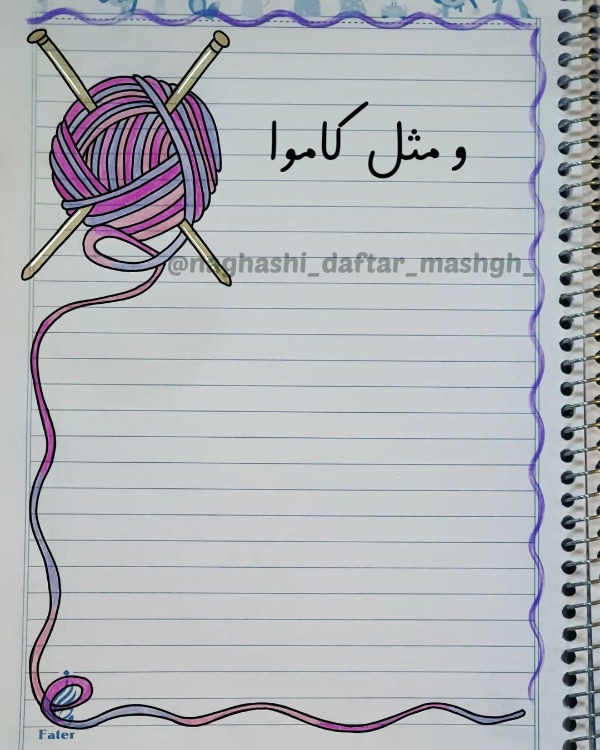 و مثل کاموا
@naghashi_daftar_mashgh_
Fater